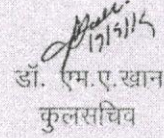 17/5/15
डॉ. एम.ए.खान
कुलसचिव